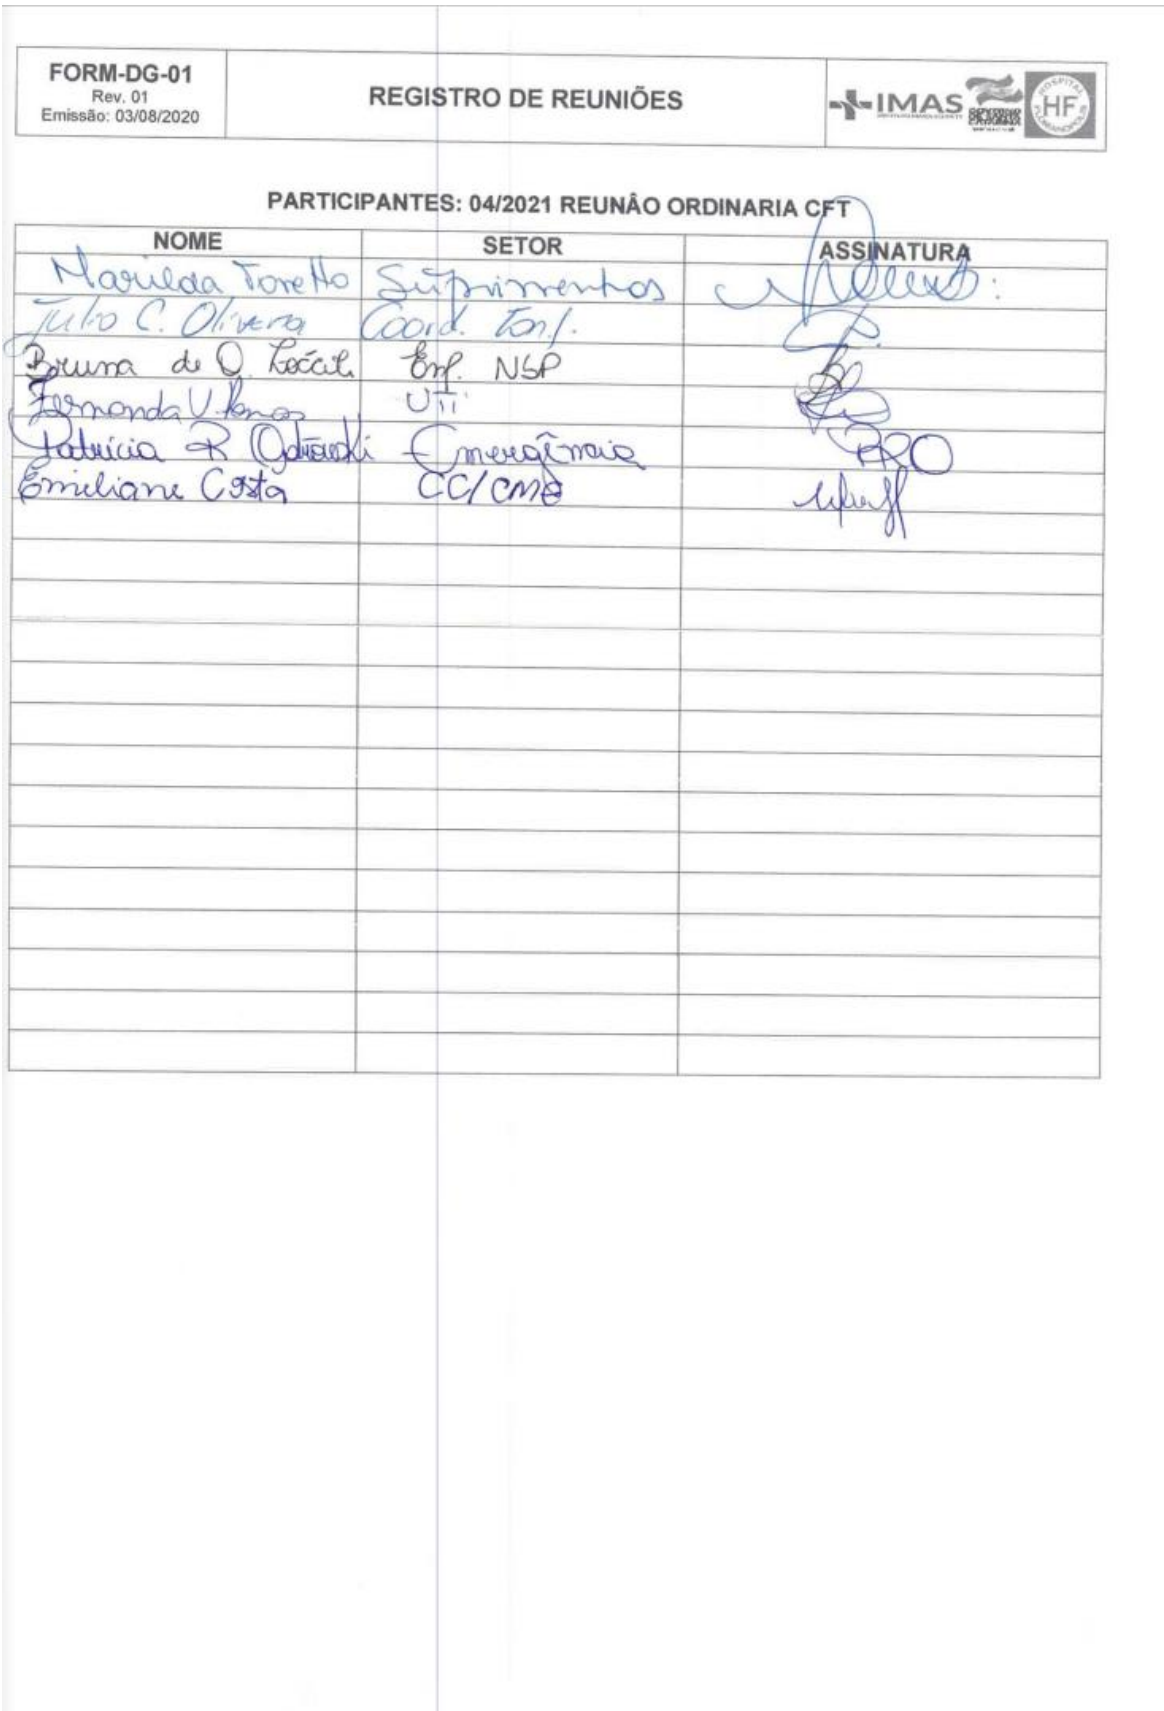 FORM-DG-01
Rev. 01
Emissão: 03/08/2020
REGISTRO DE REUNIÕES
IMAS
HOSPITAL
HF
FLORIANÓPOLIS
PARTICIPANTES: 04/2021 REUNÂO ORDINARIA CFT
NOME SETOR ASSINATURA
Marilda Toretto Suprimentos
Julio C. Olivera Coord. Farf.
Bruna de O. Enf. NSP
Fernanda V. Ramos UTI
Patrícia R Emergência RRO
Emeliane Costa CC/CME